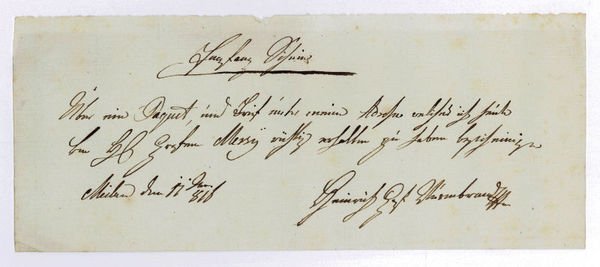 Empfang Schein
Über ein Paquet, und Brief unter meine Adresse welches ich heute
Grafen Mercy richtig erhalten zu haben bescheinige
den 11 Jan
Heinrich Wurmbrand